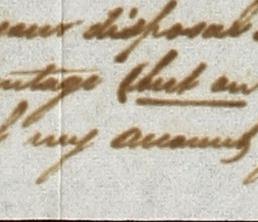 your disposal
ntage (but on
my account